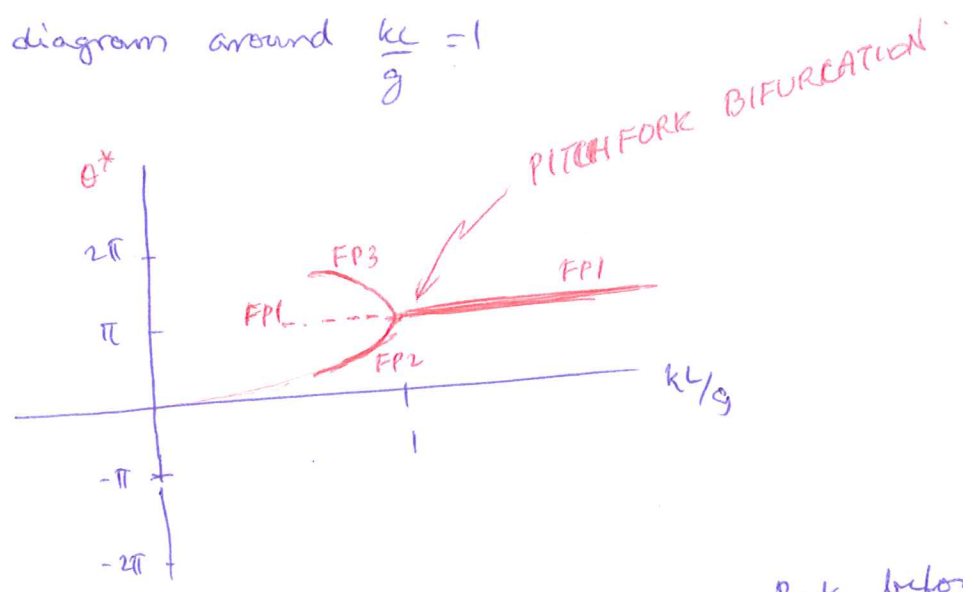 diagram around kL/g = 1
PITCHFORK BIFURCATION.
θ*
2π
FP3
FP1
FP1
π
FP2
kL/g
1
-π
-2π